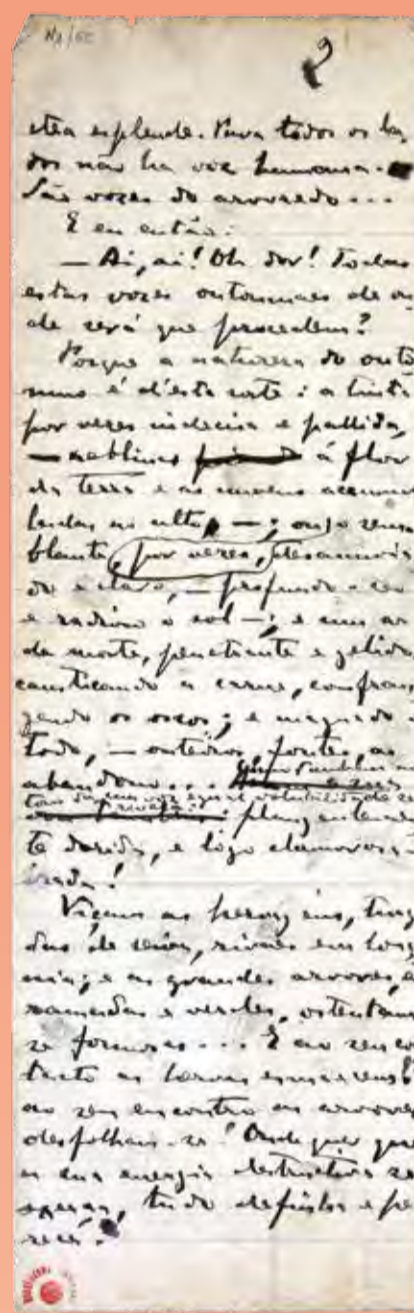 2
ctea esplende. Para todos os la
dos não ha voz humana.
São vozes do arvoredo...
E eu então:
— Ai, ai! Oh dor! Todas
estas vozes outomnaes de o
de será que procedem?
Porque a natureza do outo
mno é d'esta sorte: a tinta
por vezes indecisa e pallida,
— neblinas á flor
da terra e as nuvens accumu
ladas no alto —; cujo sem
blante, por vezes, desanuvia
do e claro, — profundo o ceu
e radioso o sol —; e um ar
de morte, penetrante e gelido,
causticando a carne, confran
gendo os ossos; e magoado
todo, — outeiros, fontes, ao
abandono...
plangentemen
te dorida, e logo clamorosa
irada!
Viçam as hervagens,
das de seiva, rivaes em
nia; e as grandes arvores, e
ramadas e verdes, ostentam
se formosas... E ao seu co
tacto as hervas esmaecem! E
ao seu encontro as arvores
desfolham-se! Onde quer que
a sua energia destructiva se
exerça, tudo definha e pe
rece.